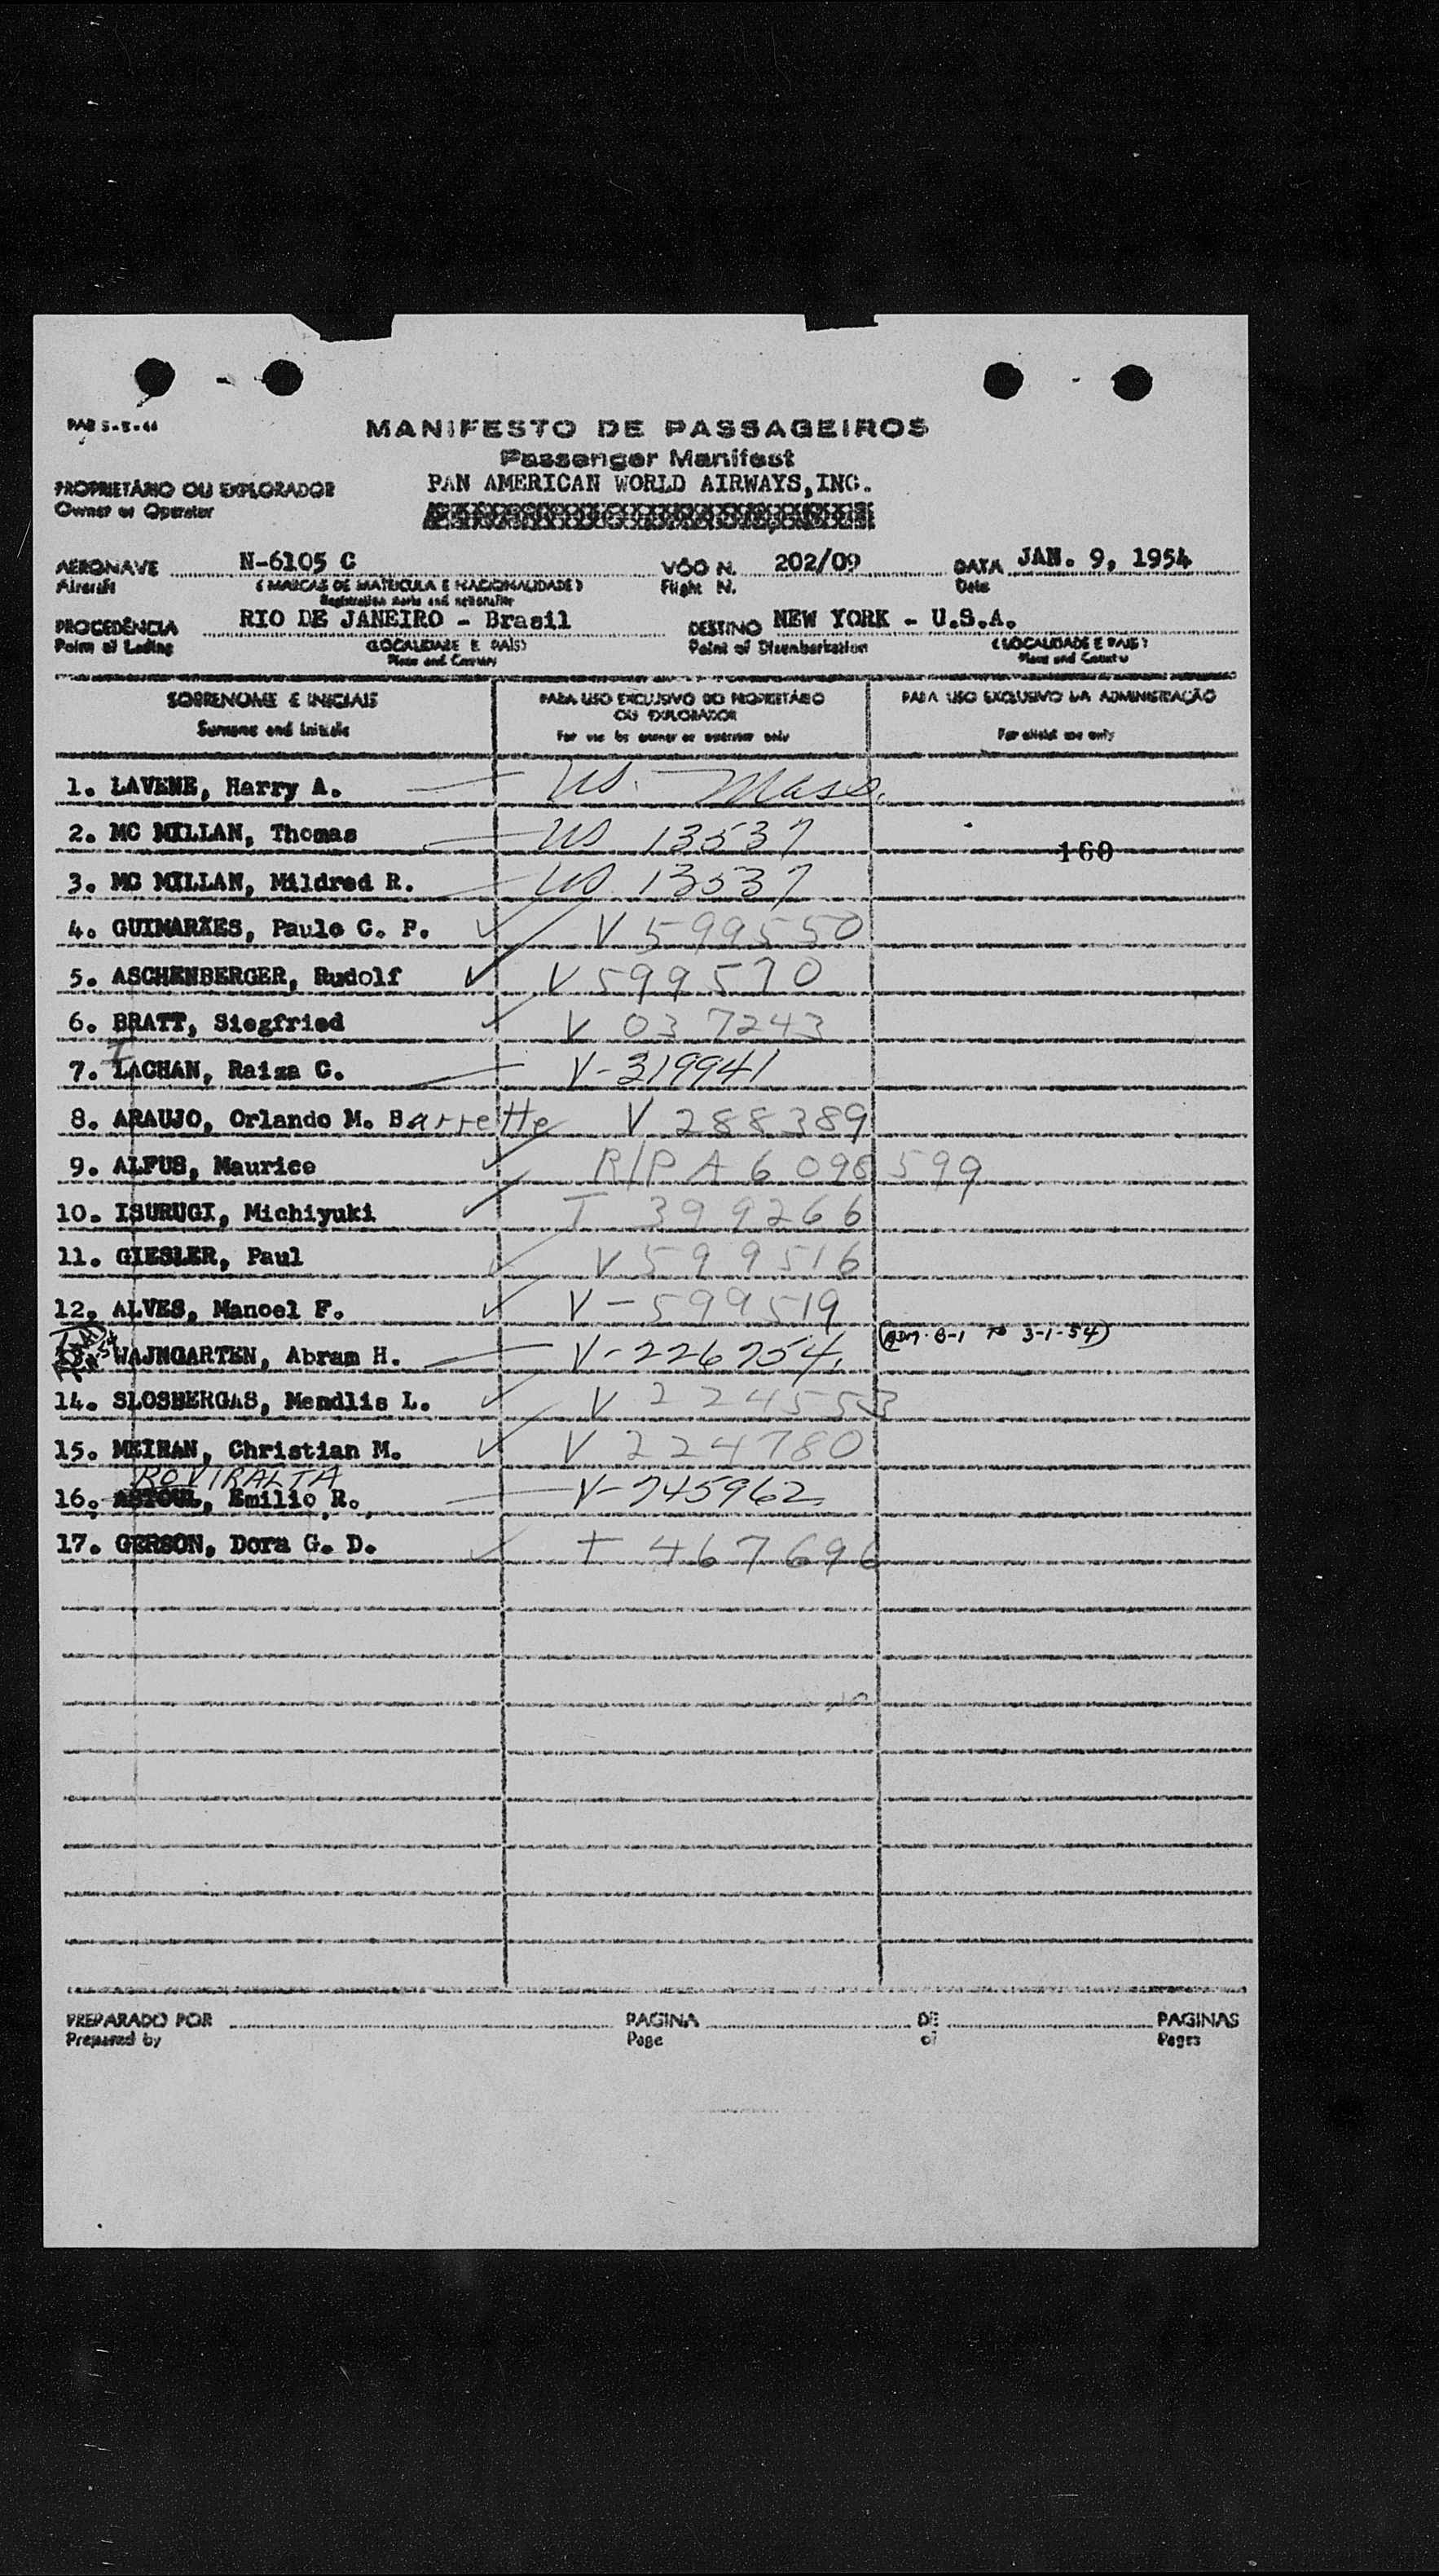 PAB 5-5-44
MANIFESTO DE PASSAGEIROS
Passenger Manifest
PROPRIETÁRIO OU EXPLORADOR PAN AMERICAN WORLD AIRWAYS,INC.
Owner or Operator
AERONAVE N-6105 C VÔO N. 202/09 DATA JAN. 9, 1954
Aircraft (MARCAS DE MATRICULA E NACIONALIDADE) Flight N. Date
Registration marks and nationality
PROCEDÊNCIA RIO DE JANEIRO - Brasil DESTINO NEW YORK - U.S.A.
Point of Lading (LOCALIDADE E PAÍS) Point of Disembarkation (LOCALIDADE E PAIS)
Place and Country Place and Country
SOBRENOME E INICIAIS PARA USO EXCLUSIVO DO PROPRIETÁRIO PARA USO EXCLUSIVO DA ADMINISTRAÇÃO
OU EXPLORADOR
Surname and Initials For use by owner or operator only For official use only
1. LAVENE, Harry A. US. Mass.
2. MC MILLAN, Thomas US 13537
160
3. MC MILLAN, Mildred R. US 13537
4. GUIMARÃES, Paulo C. P. V 599550
5. ASCHENBERGER, Rudolf V 599570
6. BRATT, Siegfried V 037243
7. LACHAN, Raiza C. V-319941
8. ARAUJO, Orlando M. Barrette V 288389
9. ALFUS, Maurice R/P A 6 098 599
10. ISURUGI, Michiyuki T 399266
11. GIESLER, Paul V 599516
12. ALVES, Manoel F. V-599519
(ADM. B-1 TO 3-1-54)
WAJNGARTEN, Abram H. V-226754
14. SLOSBERGAS, Mendlis L. V 224553
15. MEIHAN, Christian M. V 224780
ROVIRALTA
16. ASTOUL, Emilio R. V-745962
17. GERSON, Dora G. D. T 467696
PREPARADO POR PAGINA DE PAGINAS
Prepared by Page of Pages